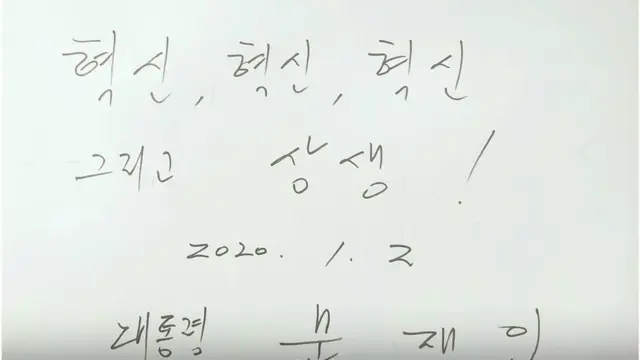 혁신, 혁신, 혁신
그리고 상생!
2020. 1. 2
대통령 문 재 인